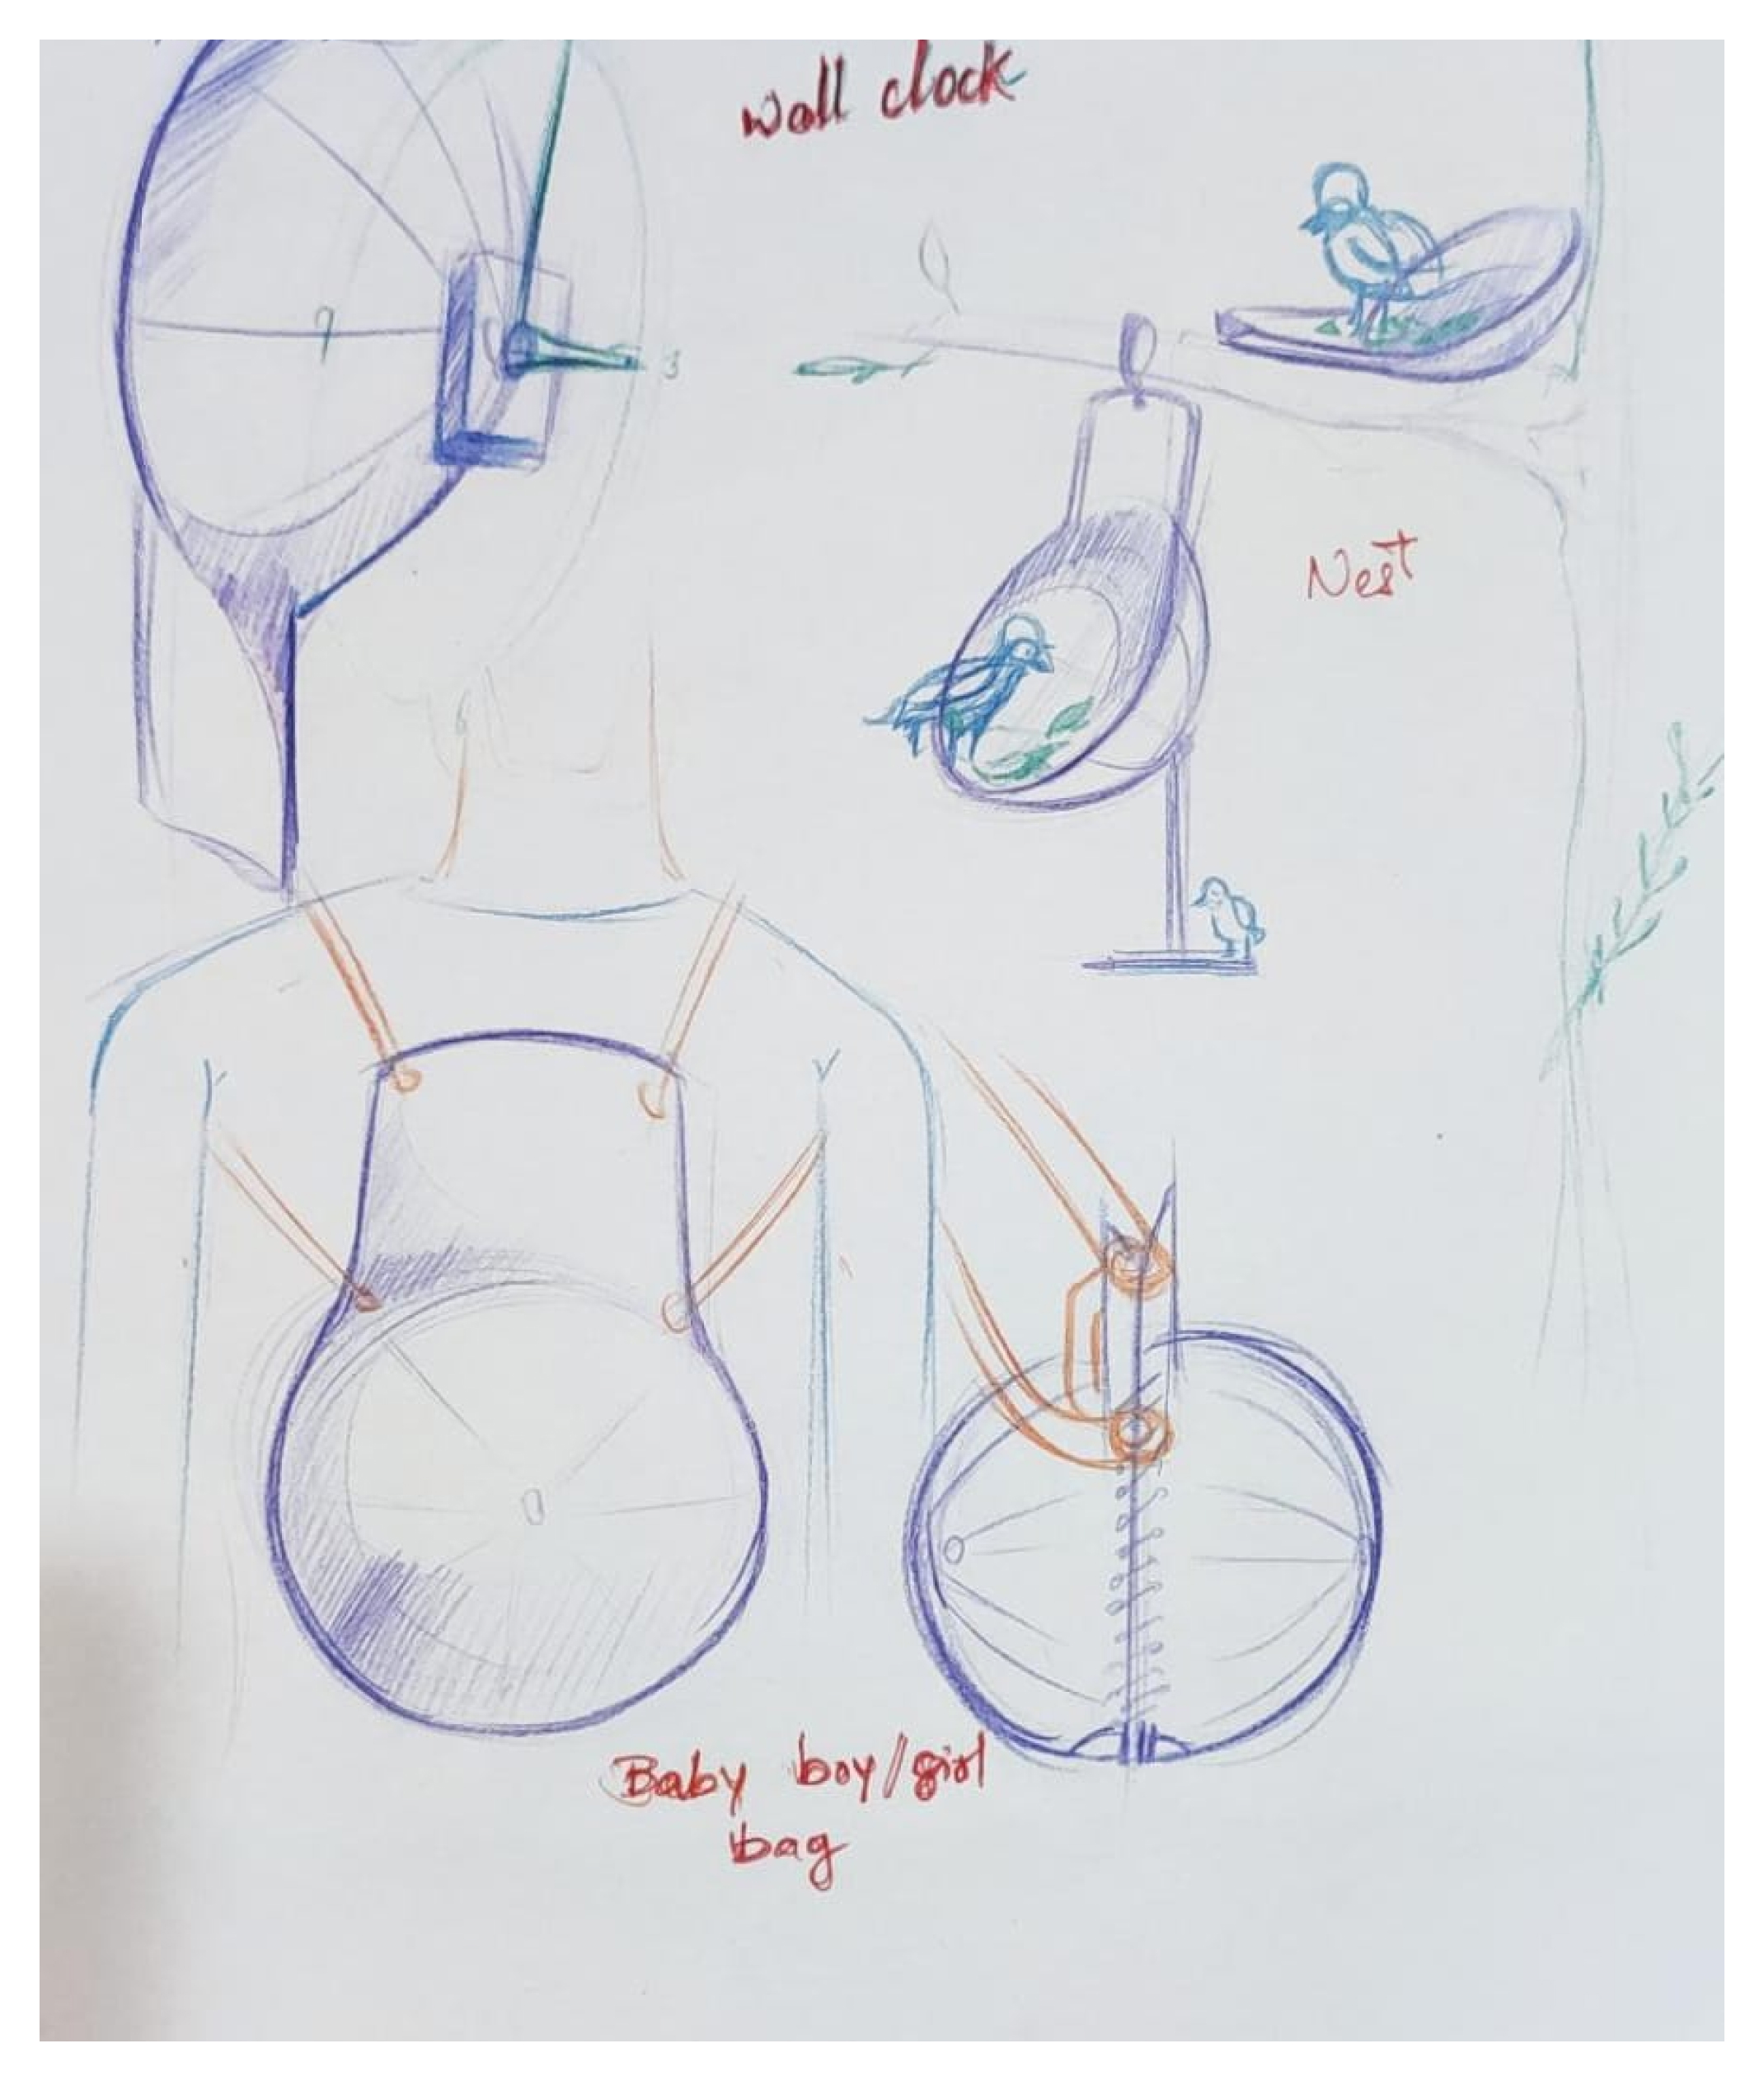 Wall clock
3
Nest
Baby boy/girl
bag